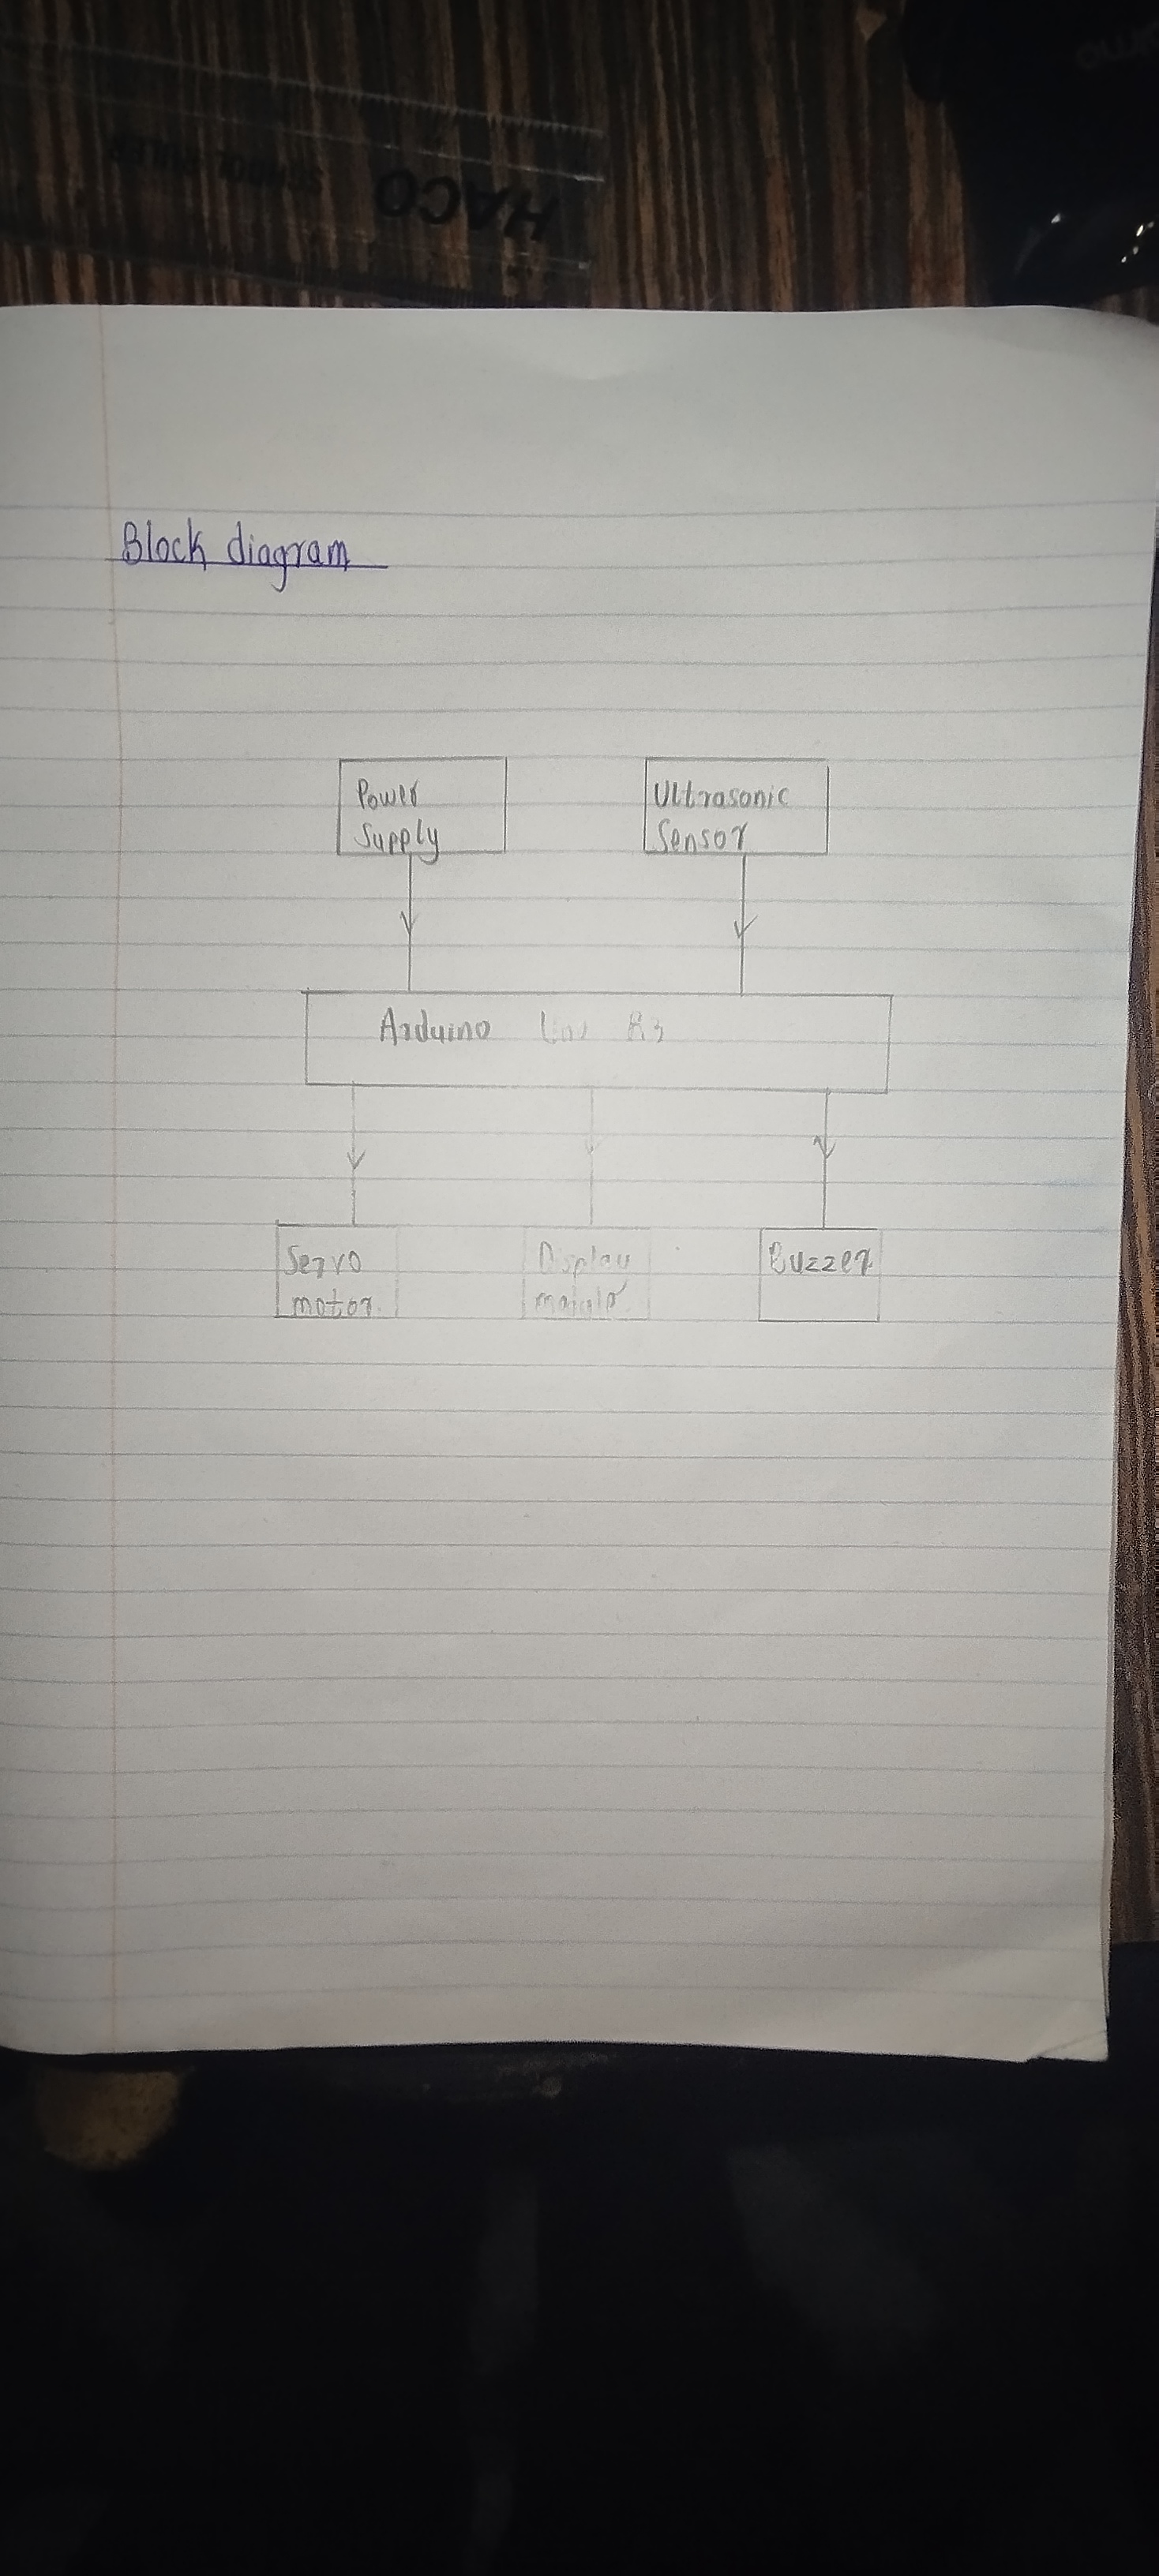 HACO
SCHOOL RULER
Block diagram
Power
Supply
Ultrasonic
Sensor
Arduino Uno R3
Servo
motor.
Display
module
Buzzer